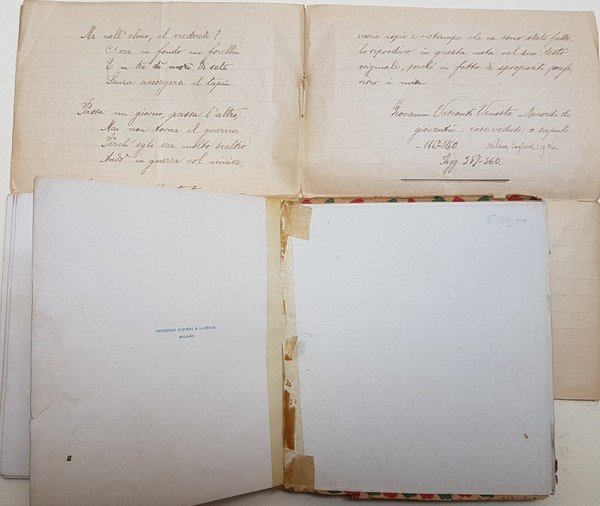 Ma nell'elmo, il credereste?
C'era in fondo un forellin
E in tre dì morì di sete
Senza accorgersi il tapin.
Passa un giorno, passa l'altro,
Mai non torna il guerrier.
Perch'egli era molto scaltro
Andò in guerra col cimier,
varie copie e ristampe che ne sono state fatte,
lo riproduco in questa nota nel suo testo
originale, perché in fatto di spropositi prefe-
risco i miei.
Giovanni Visconti Venosta - Ricordi di
gioventù: cose vedute o sapute
- 1847-1860. Milano, Cogliati
Pagg. 357-360.
INCISIONI ALFIERI & LACROIX
MILANO